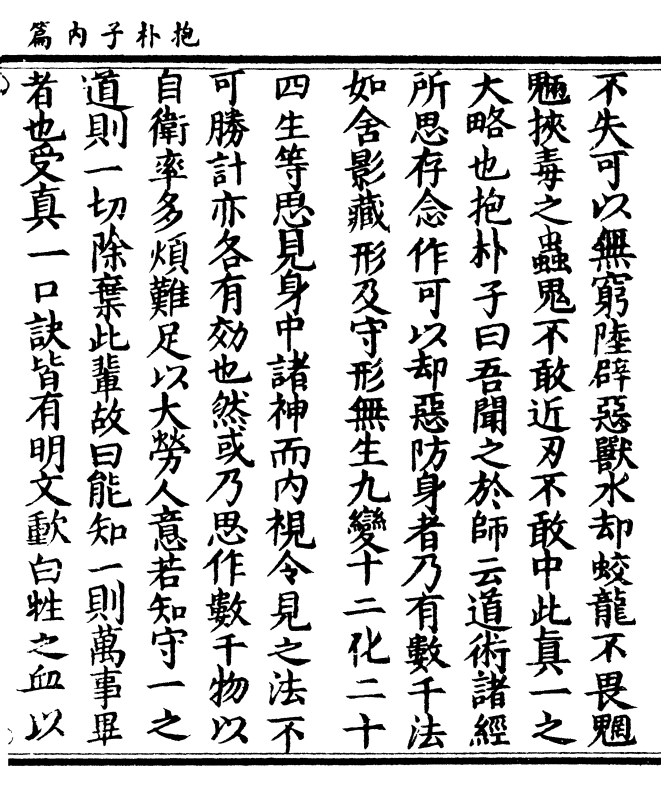 抱朴子内篇
不失可以無窮陸辟惡獸水却蛟龍不畏魍
魎挾毒之蟲鬼不敢近刃不敢中此真一之
大略也抱朴子曰吾聞之於師云道術諸經
所思存念作可以却惡防身者乃有數千法
如含影藏形及守形無生九變十二化二十
四生等思見身中諸神而内視令見之法不
可勝計亦各有効也然或乃思作數千物以
自衛率多煩難足以大勞人意若知守一之
道則一切除棄此輩故曰能知一則萬事畢
者也受真一口訣皆有明文歃白牲之血以